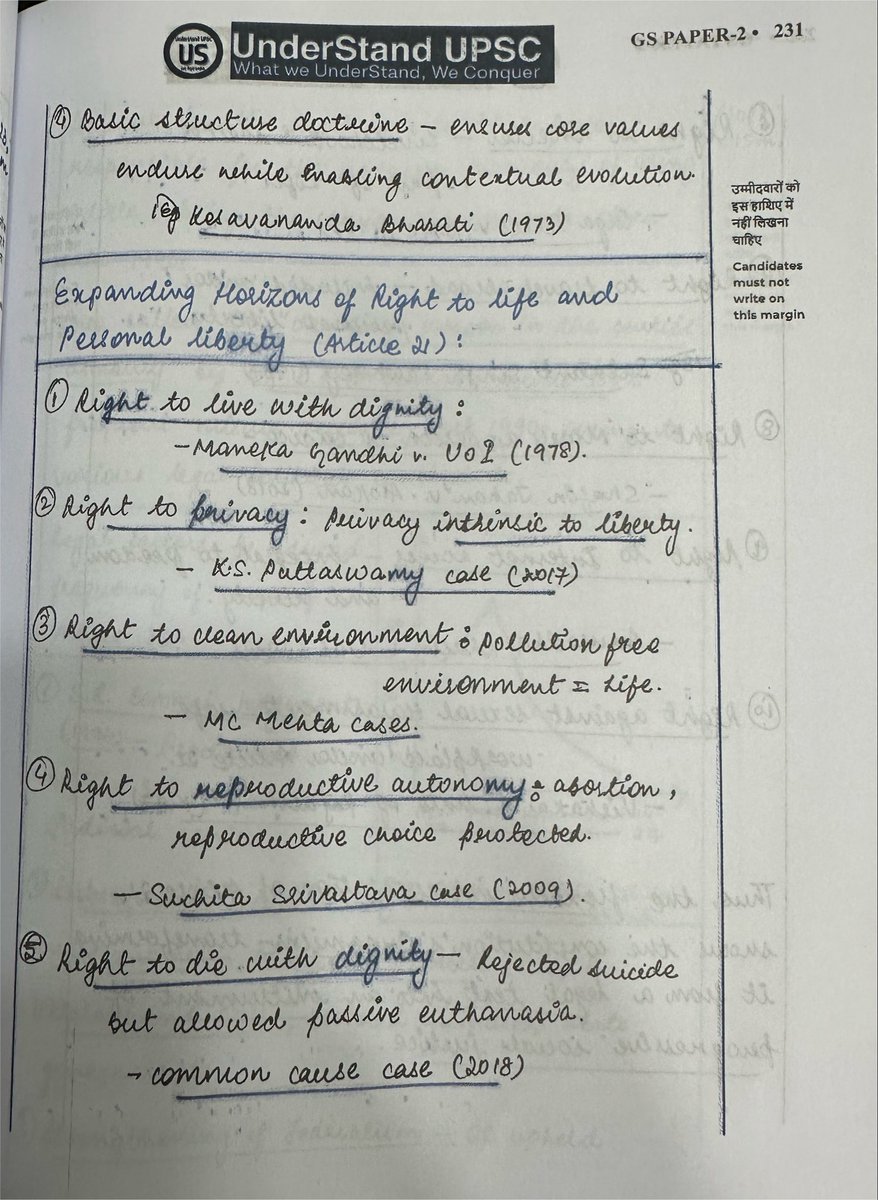 UnderStand UPSC
US
UnderStand UPSC
What we UnderStand, We Conquer
GS PAPER-2 • 231
④ Basic structure doctrine – ensures core values
endure while enabling contextual evolution.
eg Kesavananda Bharati (1973)
उम्मीदवारों को
इस हाशिए में
नहीं लिखना
चाहिए
Candidates
must not
write on
this margin
Expanding Horizons of Right to life and
Personal liberty (Article 21) :
① Right to live with dignity :
– Maneka Gandhi v. UOI (1978).
② Right to privacy : Privacy intrinsic to liberty.
– K.S. Puttaswamy case (2017)
③ Right to clean environment : Pollution free
environment = Life.
– MC Mehta cases.
④ Right to reproductive autonomy : abortion,
reproductive choice protected.
– Suchita Srivastava case (2009).
⑤ Right to die with dignity – Rejected suicide
but allowed passive euthanasia.
– common cause case (2018)